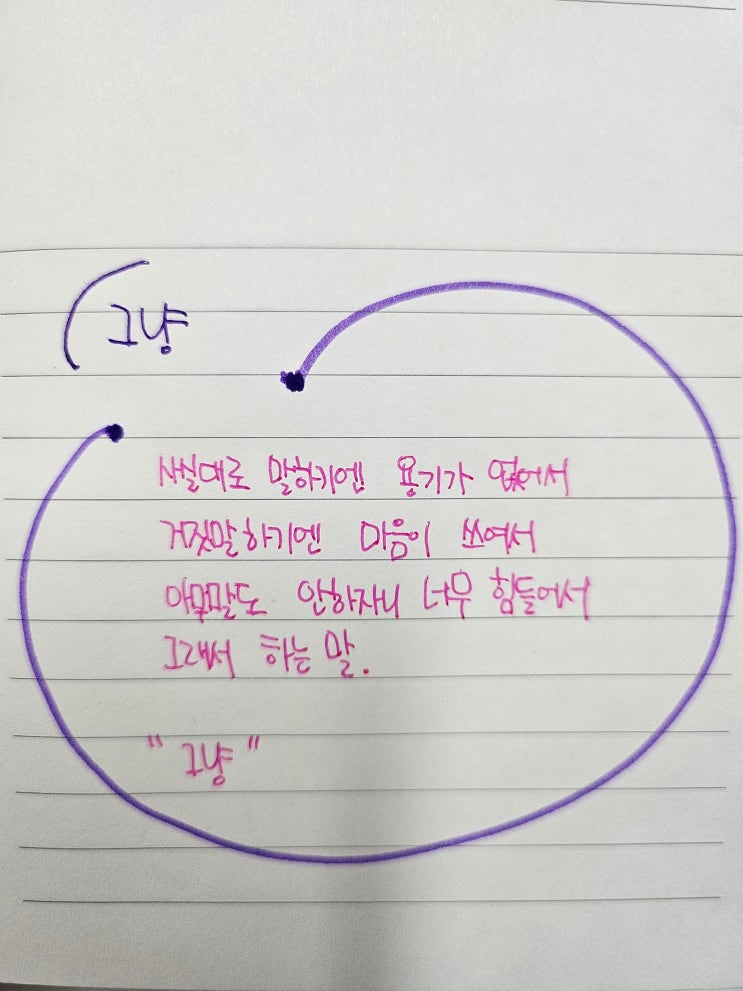 그냥
사실대로 말하기엔 용기가 없어서
거짓말하기엔 마음이 쓰여서
아무말도 안하자니 너무 힘들어서
그래서 하는 말.
"그냥"